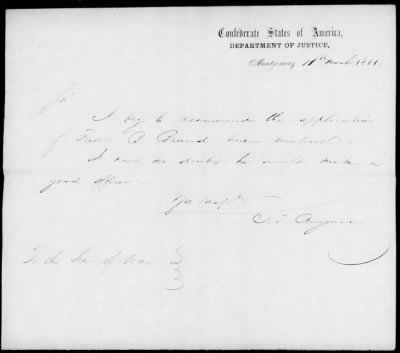 Confederate States of America,
DEPARTMENT OF JUSTICE,
Montgomery, 11th March 1861.
Sir
I beg to recommend the application
of B
I have no doubt he would make a
good officer
Yr resply
To the Sec. of War